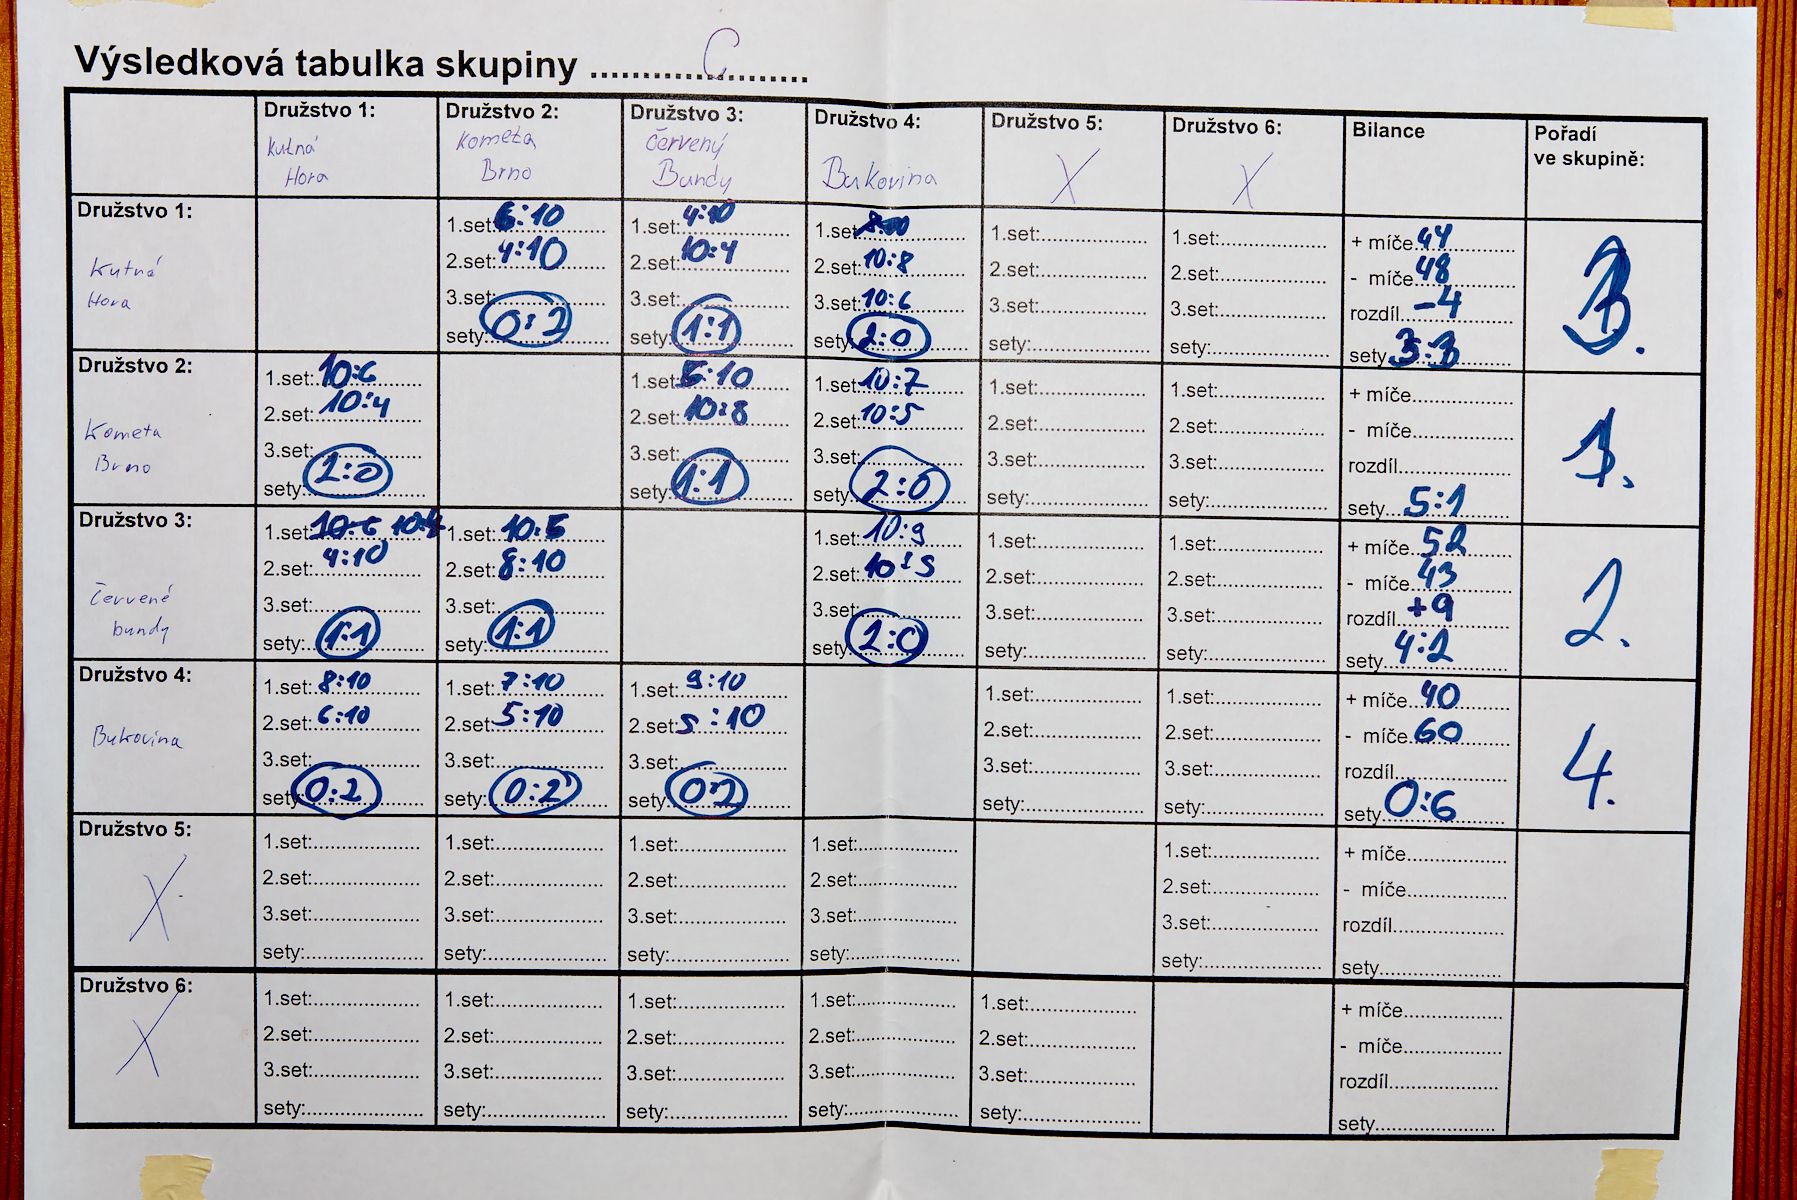 Výsledková tabulka skupiny ........C........
Družstvo 1:
Kutná
Hora
Družstvo 2:
Kometa
Brno
Družstvo 3:
červený
Bundy
Družstvo 4:
Bukovina
Družstvo 5:
X
Družstvo 6:
X
Bilance
Pořadí
ve skupině:
Družstvo 1:
Kutná
Hora
1.set: 6:10
2.set: 4:10
3.set:
sety: 0:2
1.set: 4:10
2.set: 10:4
3.set:
sety: 1:1
1.set:
2.set: 10:8
3.set: 10:6
sety: 2:0
1.set:
2.set:
3.set:
sety:
1.set:
2.set:
3.set:
sety:
+ míče 44
- míče 48
rozdíl -4
sety 3:3
3.
Družstvo 2:
Kometa
Brno
1.set: 10:6
2.set: 10:4
3.set:
sety: 2:0
1.set: 5:10
2.set: 10:8
3.set:
sety: 1:1
1.set: 10:7
2.set: 10:5
3.set:
sety: 2:0
1.set:
2.set:
3.set:
sety:
1.set:
2.set:
3.set:
sety:
+ míče
- míče
rozdíl
sety 5:1
1.
Družstvo 3:
Červené
bundy
1.set: 10:6 10:4
2.set: 4:10
3.set:
sety: 1:1
1.set: 10:5
2.set: 8:10
3.set:
sety: 1:1
1.set: 10:9
2.set: 10:5
3.set:
sety: 2:0
1.set:
2.set:
3.set:
sety:
1.set:
2.set:
3.set:
sety:
+ míče 52
- míče 43
rozdíl +9
sety 4:2
2.
Družstvo 4:
Bukovina
1.set: 8:10
2.set: 6:10
3.set:
sety: 0:2
1.set: 7:10
2.set: 5:10
3.set:
sety: 0:2
1.set: 9:10
2.set: 5:10
3.set:
sety: 0:2
1.set:
2.set:
3.set:
sety:
1.set:
2.set:
3.set:
sety:
+ míče 40
- míče 60
rozdíl
sety 0:6
4.
Družstvo 5:
X
1.set:
2.set:
3.set:
sety:
1.set:
2.set:
3.set:
sety:
1.set:
2.set:
3.set:
sety:
1.set:
2.set:
3.set:
sety:
1.set:
2.set:
3.set:
sety:
+ míče
- míče
rozdíl
sety
Družstvo 6:
X
1.set:
2.set:
3.set:
sety:
1.set:
2.set:
3.set:
sety:
1.set:
2.set:
3.set:
sety:
1.set:
2.set:
3.set:
sety:
1.set:
2.set:
3.set:
sety:
+ míče
- míče
rozdíl
sety